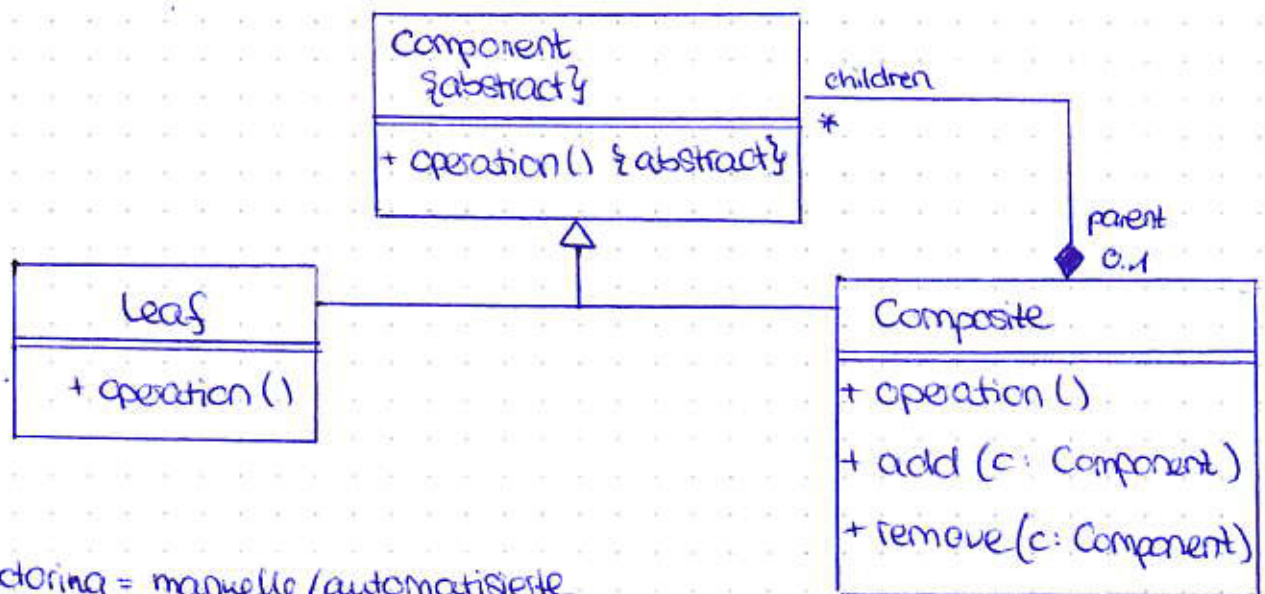 Component
{abstract}
+ operation() {abstract}
children
*
parent
0..1
Leaf
+ operation()
Composite
+ operation()
+ add (c: Component)
+ remove (c: Component)
= manuelle/automatisierte